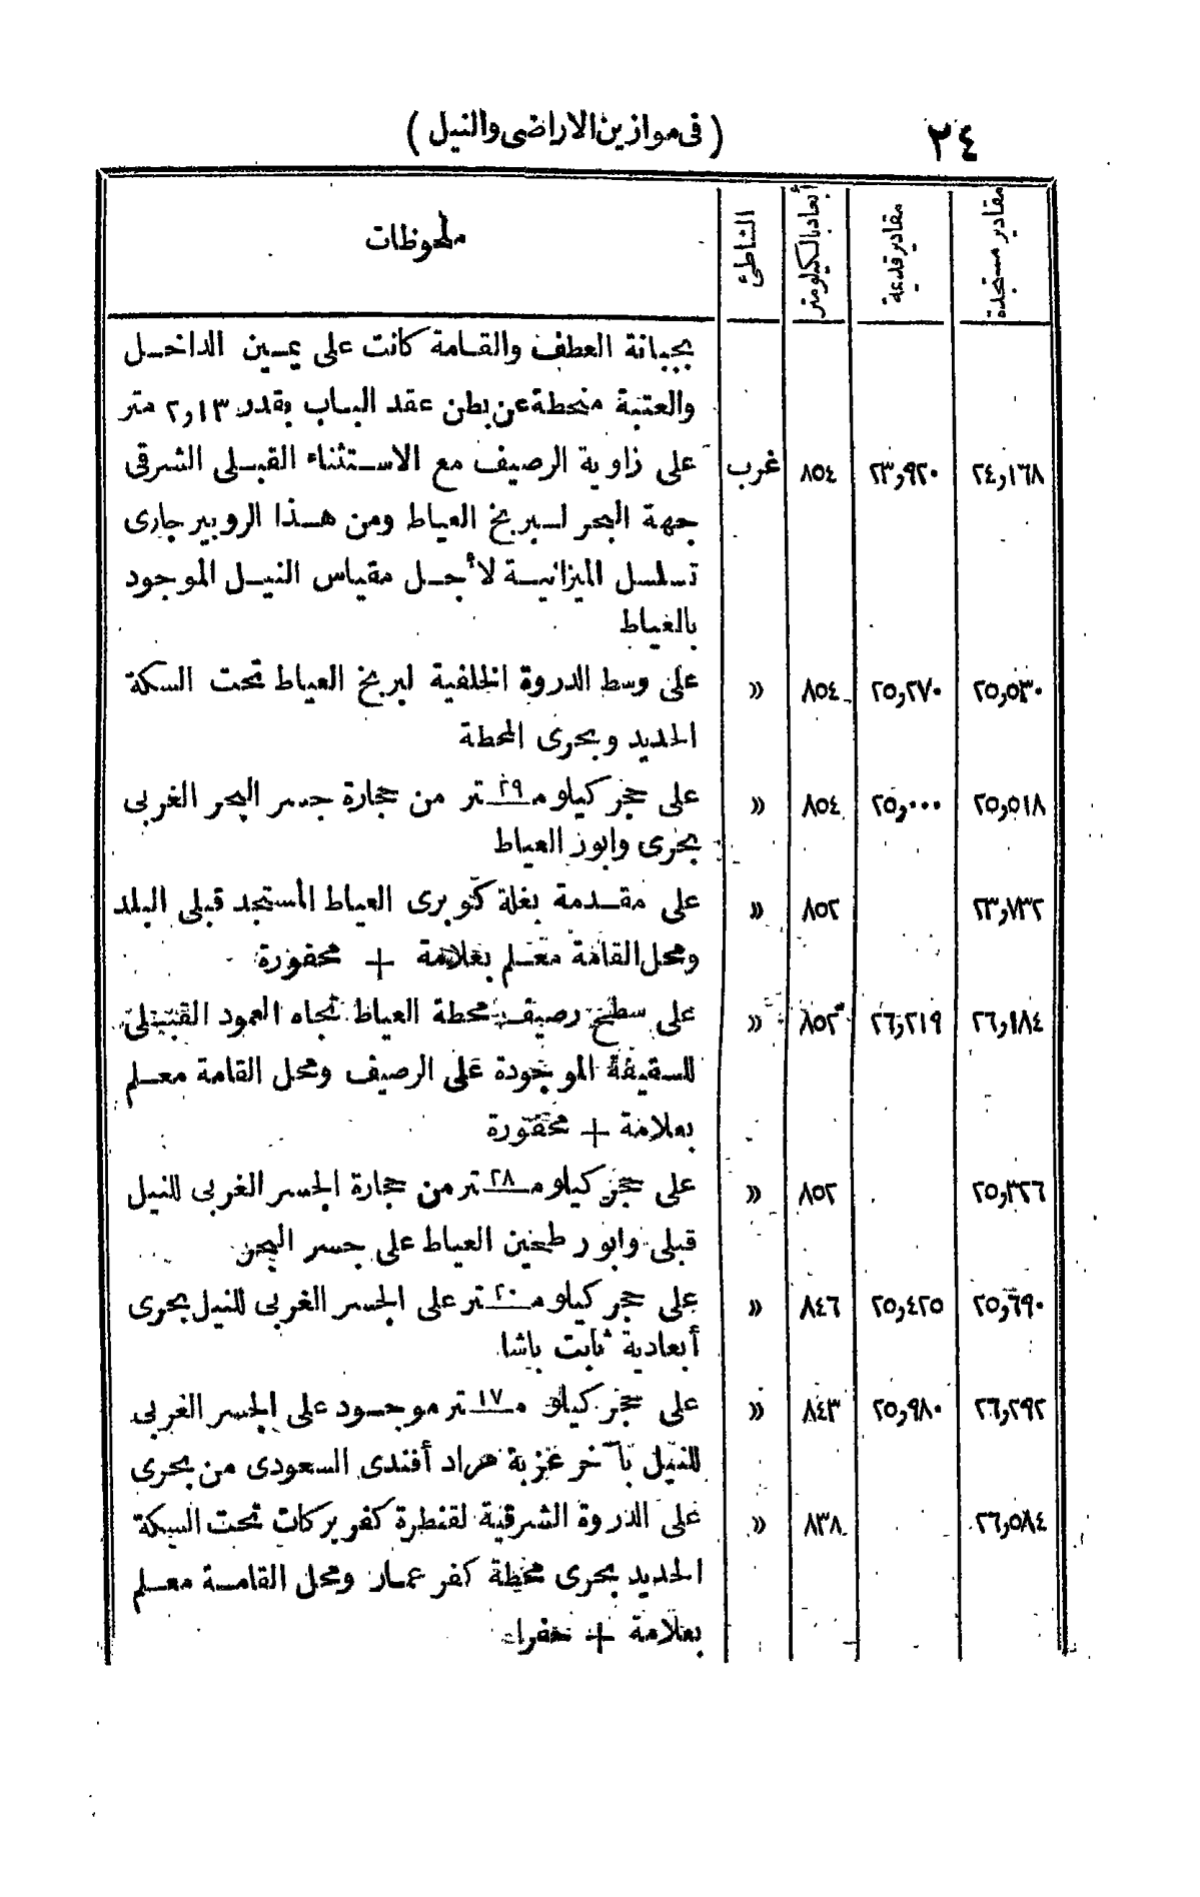 ٢٤ (فى موازين الاراضى والنيل)
مقادير مستجدة مقادير قديمة أبعاد بالكيلومتر الشاطئ ملحوظات
بجبانة العطف والقامة كانت على يمين الداخل
والعتبة منحطة عن بطن عقد الباب بقدر ٢,١٣ متر
٢٤,١٦٨ ٢٣,٩٢٠ ٨٥٤ غرب على زاوية الرصيف مع الاستثناء القبلى الشرقى
جهة البحر لسبربخ العياط ومن هذا الروبير جارى
تسلسل الميزانية لأجل مقياس النيل الموجود
بالعياط
٢٥,٥٣٠ ٢٥,٢٧٠ ٨٥٤ » على وسط الدروة الخلفية لبربخ العياط تحت السكة
الحديد وبحرى المحطة
٢٥,٥١٨ ٢٥,٠٠٠ ٨٥٤ » على حجر كيلو م٢٩ـتر من حجارة جسر البحر الغربى
بحرى وابور العياط
٢٣,٧٣٢ ٨٥٢ » على مقدمة بغلة كوبرى العياط المستجد قبلى البلد
ومحل القامة معلم بعلامة + محفورة
٢٦,١٨٤ ٢٦,٢١٩ ٨٥٢ » على سطح رصيف محطة العياط تجاه العمود القبلى
للسقيفة الموجودة على الرصيف ومحل القامة معلم
بعلامة + محفورة
٢٥,٣٢٦ ٨٥٢ » على حجر كيلو م٢٨ـتر من حجارة الجسر الغربى للنيل
قبلى وابور طحين العياط على جسر البحر
٢٥,٦٩٠ ٢٥,٤٢٥ ٨٤٦ » على حجر كيلو م٢٠ـتر على الجسر الغربى للنيل بحرى
أبعادية ثابت باشا
٢٦,٢٩٢ ٢٥,٩٨٠ ٨٤٣ » على حجر كيلو م١٧ـتر موجود على الجسر الغربى
للنيل بآخر عزبة مراد أفندى السعودى من بحرى
٢٦,٥٨٤ ٨٣٨ » على الدروة الشرقية لقنطرة كفر بركات تحت السكة
الحديد بحرى محطة كفر عمار ومحل القامة معلم
بعلامة + حفرا